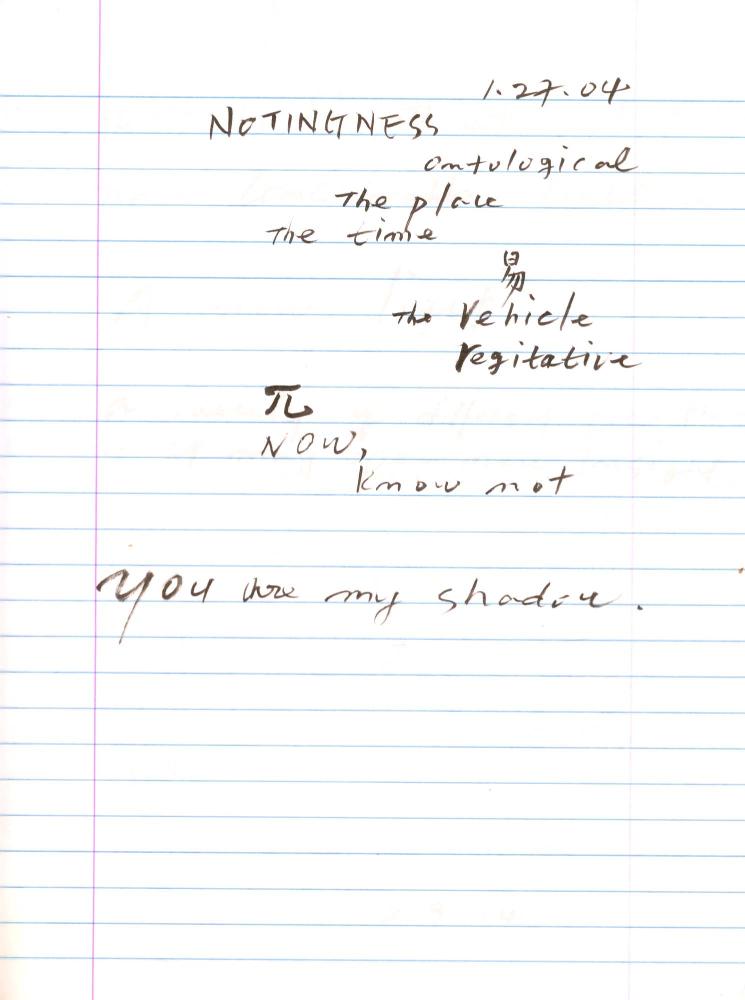 1.27.04
NOTINGNESS
ontological
The place
The time
易
The Vehicle
Vegitative
π
NOW,
know not
You are my shadow.